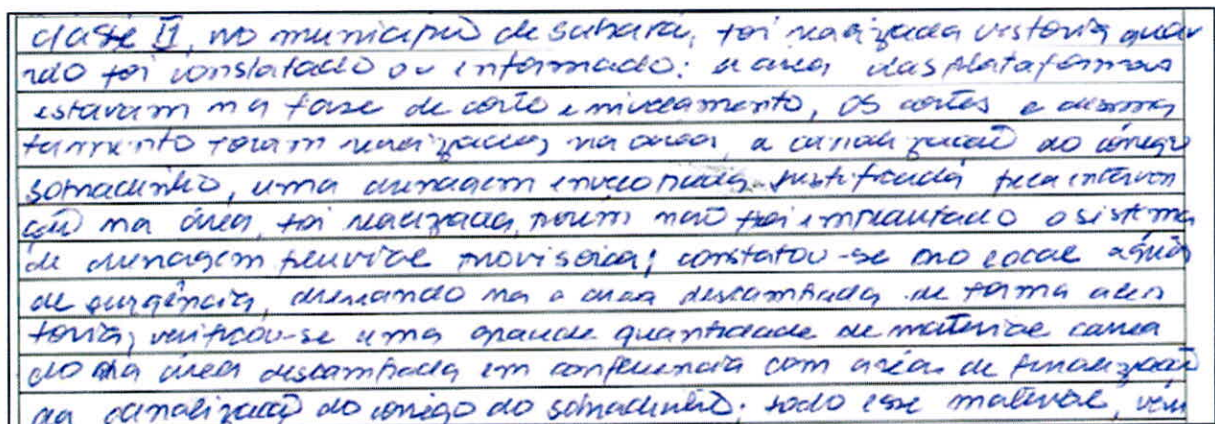 classe II, no municipio de Sabará, foi realizada vistoria quan
ndo foi constatado ou informado: a area das plataformas
estavam na fase de corte e nivelamento, os cortes e desma
tamento foram realizados na area, a canalização do córrego
, uma drenagem envelopada justificada pela interven
ção na área, foi realizada, porem não foi implantado o sistema
de drenagem pluvial provisoria; constatou-se no local agua
de surgência, drenando na a area descampada de forma alea
toria; verificou-se uma grande quantidade de material carrea
do na área descampada em confluencia com a área de finalização
da canalização do córrego do ; todo esse material, vem